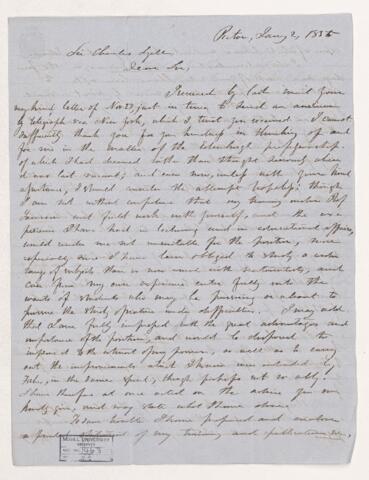 Pictou, Jany 2, 1855
Sir Charles Lyell
Dear Sir,
I received by last mail your
very kind letter of Nov 23, just in time to send an answer
by telegraph via New York, which I trust you received. I cannot
sufficiently thank you for your kindness in thinking of and
for me in the matter of the Edinburgh professorship,
of which I had dreamed rather than thought seriously when
it was last vacant; and even now, with your kind
assistance, I should consider the attempt hopeless; though
I am not without confidence that my training under Prof
Jameson and field work with yourself, and the ex-
perience I have had in lecturing and in educational affairs,
would render me not unsuitable for the position, more
especially since I have been obliged to study a wider
range of subjects than is now usual with naturalists, and
can from my own experience enter fully into the
wants of students who may be pursuing or about to
pursue the study of nature under difficulties. I may add
that I am fully impressed with the great advantages and
importance of the position, and would be disposed to
improve it to the utmost of my power, as well as to carry
out the improvements which I know were intended by
Forbes, in the same spirit, though perhaps not so ably.
I have therefore at once acted on the advice you so
kindly give, and may state what I have done.
I have prepared and enclose
a printed statement of my training and publications
McGILL UNIVERSITY
ARCHIVES
ACC. NO. 1463